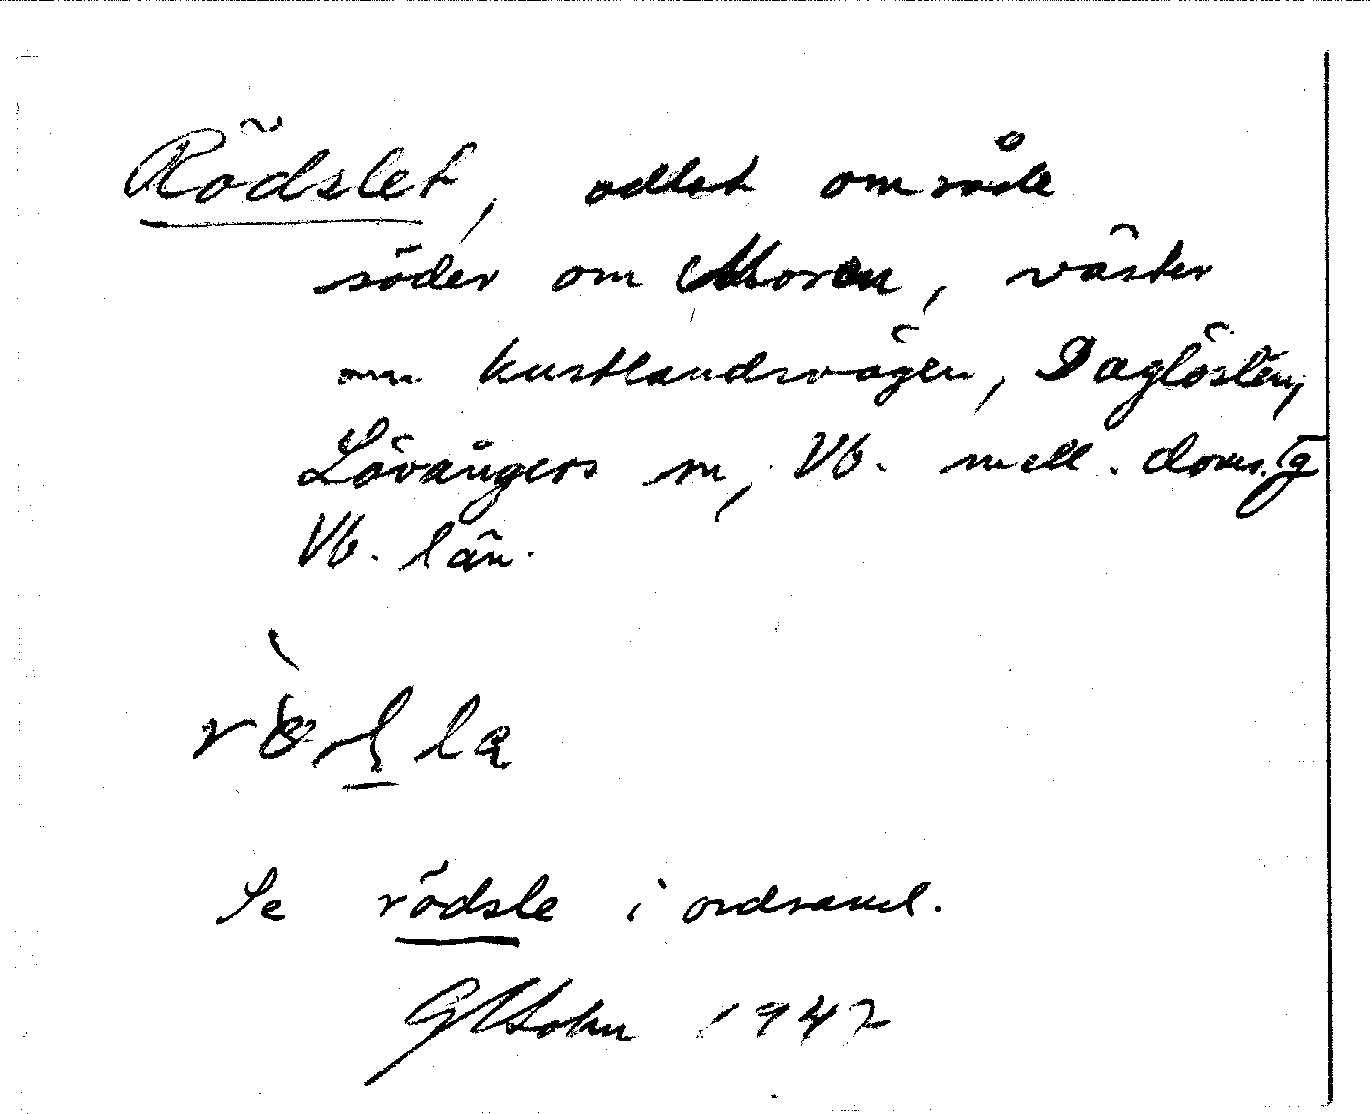 Rödslet, odlat område
söder om Moren, väster
om kustlandsvägen, Daglösten,
Lövångers sn, Vb. mell. doms.g
Vb. län.
Se rödsle i ordsaml.
1947